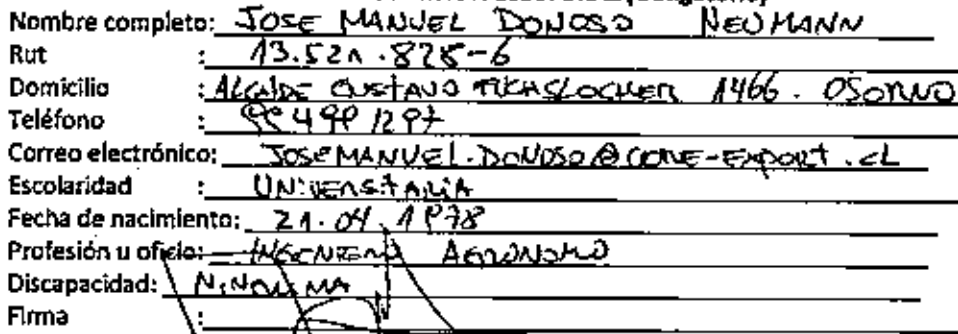 Nombre completo: JOSE MANUEL DONOSO NEUMANN
Rut : 13.521.828-6
Domicilio : ALCALDE GUSTAVO 1466. OSORNO
Teléfono : 99 499 1297
Correo electrónico: JOSEMANUEL.DONOSO@CORE-EXPORT.CL
Escolaridad : UNIVERSITARIA
Fecha de nacimiento: 21.04.1978
Profesión u oficio: INGENIERO AGRONOMO
Discapacidad: NINGUNA
Firma :